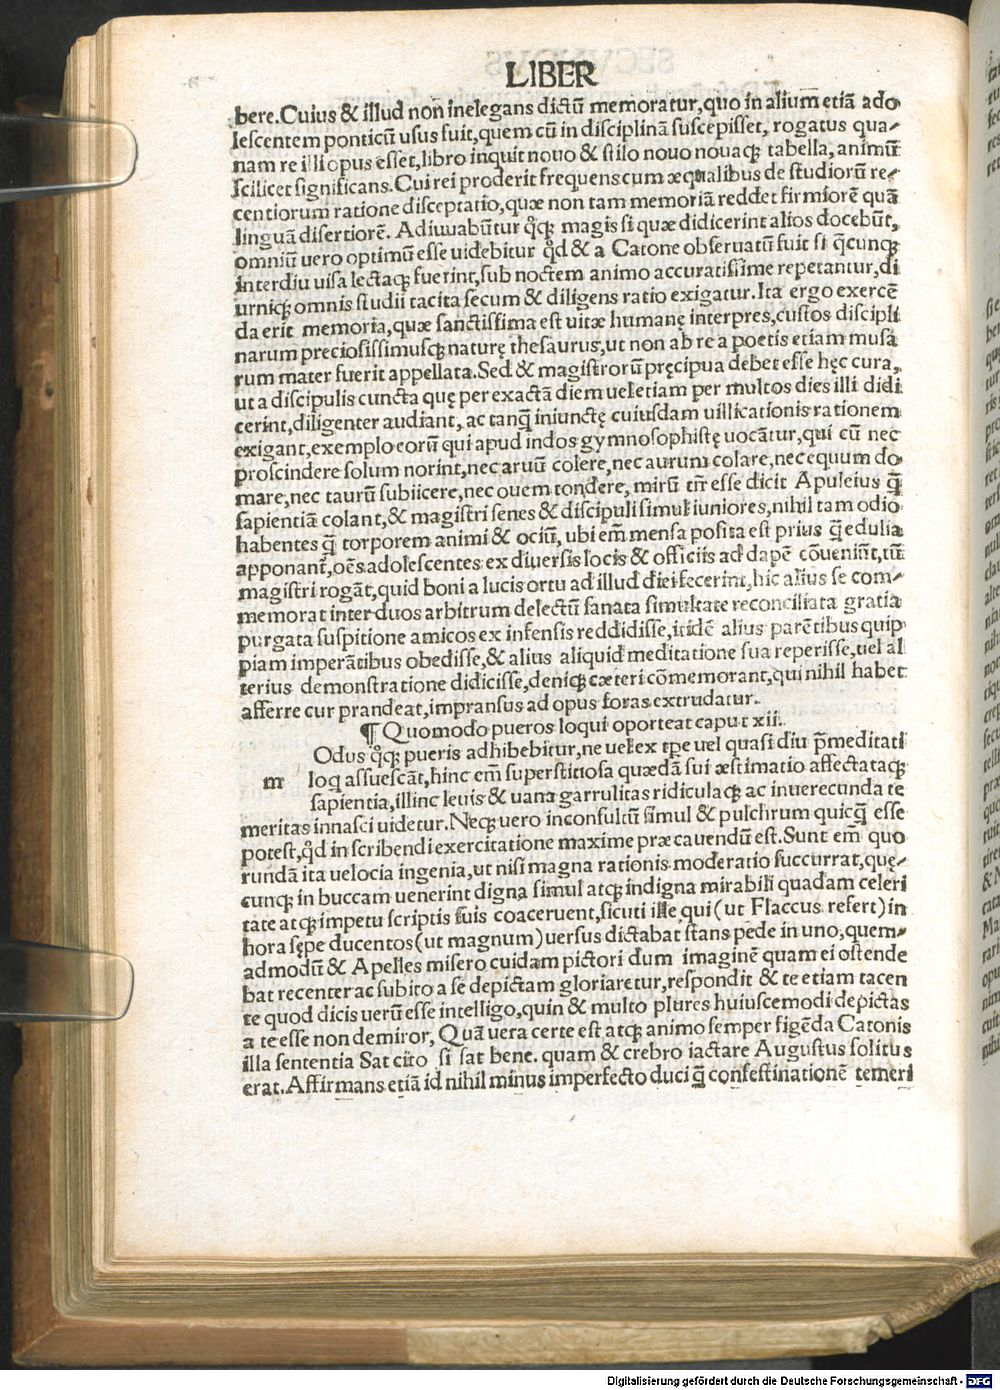 LIBER
bere. Cuius & illud non inelegans dictū memoratur, quo in alium etiā ado
lescentem ponticū usus fuit, quem cū in disciplinā suscepisset, rogatus qua-
nam re illi opus esset, libro inquit nouo & stilo nouo nouaqꝫ tabella, animū
scilicet significans. Cui rei proderit frequens cum æqualibus de studiorū re-
centiorum ratione disceptatio, quæ non tam memoriā reddet firmiorē quā
linguā disertiorē. Adiuuabūtur qͦqꝫ magis si quæ didicerint alios docebūt,
omniū uero optimū esse uidebitur qͦd & a Catone obseruatū fuit si q̄cunqꝫ
interdiu uisa lectaqꝫ fuerint, sub noctem animo accuratissime repetantur, di
urniqꝫ omnis studii tacita secum & diligens ratio exigatur. Ita ergo exercē
da erit memoria, quæ sanctissima est uitæ humanę interpres, custos discipli
narum preciosissimusqꝫ naturę thesaurus, ut non ab re a poetis etiam musa
rum mater fuerit appellata. Sed & magistrorū pręcipua debet esse hęc cura,
ut a discipulis cuncta quę per exactā diem uel etiam per multos dies illi didi
cerint, diligenter audiant, ac tanq̄ iniunctę cuiusdam uillicationis rationem
exigant, exemplo eorū qui apud indos gymnosophistę uocātur, qui cū nec
proscindere solum norint, nec aruū colere, nec aurum colare, nec equum do
mare, nec taurū subiicere, nec ouem tondere, mirū tn̄ esse dicit Apuleius q̄
sapientiā colant, & magistri senes & discipuli simul iuniores, nihil tam odio
habentes q̄ torporem animi & ociū, ubi em̄ mensa posita est prius q̄ edulia
apponant̄, oēs adolescentes ex diuersis locis & officiis ad dapē cōueniūt, tū
magistri rogāt, quid boni a lucis ortu ad illud diei fecerint, hic alius se com-
memorat inter duos arbitrum delectū sanata simultate reconciliata gratia
purgata suspitione amicos ex infensis reddidisse, itidē alius parētibus quip
piam imperātibus obedisse, & alius aliquid meditatione sua reperisse, uel al
terius demonstratione didicisse, deniqꝫ cæteri cōmemorant, qui nihil habet
afferre cur prandeat, impransus ad opus foras extrudatur.
¶ Quomodo pueros loqui oporteat caput xii.
Odus qͦqꝫ pueris adhibebitur, ne uel ex tp̄e uel quasi diu p̄meditati
m loq assuescāt, hinc em̄ superstitiosa quædā sui æstimatio affectataqꝫ
sapientia, illinc leuis & uana garrulitas ridiculaqꝫ ac inuerecunda te
meritas innasci uidetur. Neqꝫ uero inconsultū simul & pulchrum quicq̄ esse
potest, qͦd in scribendi exercitatione maxime præcauendū est. Sunt em̄ quo
rundā ita uelocia ingenia, ut nisi magna rationis moderatio succurrat, quę-
cunqꝫ in buccam uenerint digna simul atqꝫ indigna mirabili quadam celeri
tate atqꝫ impetu scriptis suis coaceruent, sicuti ille qui (ut Flaccus refert) in
hora sępe ducentos (ut magnum) uersus dictabat stans pede in uno, quem-
admodū & Apelles misero cuidam pictori dum imaginē quam ei ostende
bat recenter ac subito a se depictam gloriaretur, respondit & te etiam tacen
te quod dicis uerū esse intelligo, quin & multo plures huiuscemodi depictas
a te esse non demiror, Quā uera certe est atqꝫ animo semper figēda Catonis
illa sententia Sat cito si sat bene. quam & crebro iactare Augustus solitus
erat. Affirmans etiā id nihil minus imperfecto duci q̄ confestinationē temeri
Digitalisierung gefördert durch die Deutsche Forschungsgemeinschaft - DFG